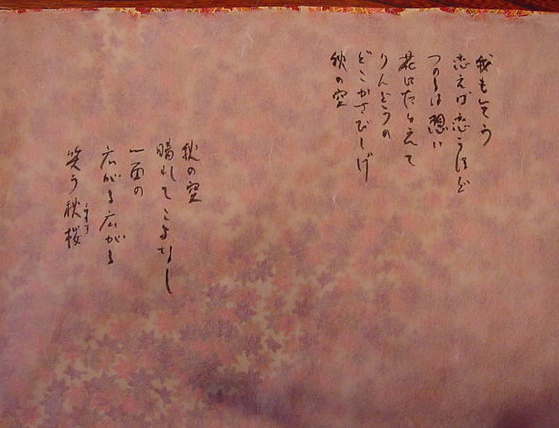 我もこう
恋えば恋うほど
つのるは想い
花にたとえて
りんどうの
どこかさびしげ
秋の空
秋の空
晴れてこよなし
一面の
広がる広がる
笑う秋桜
こすもす